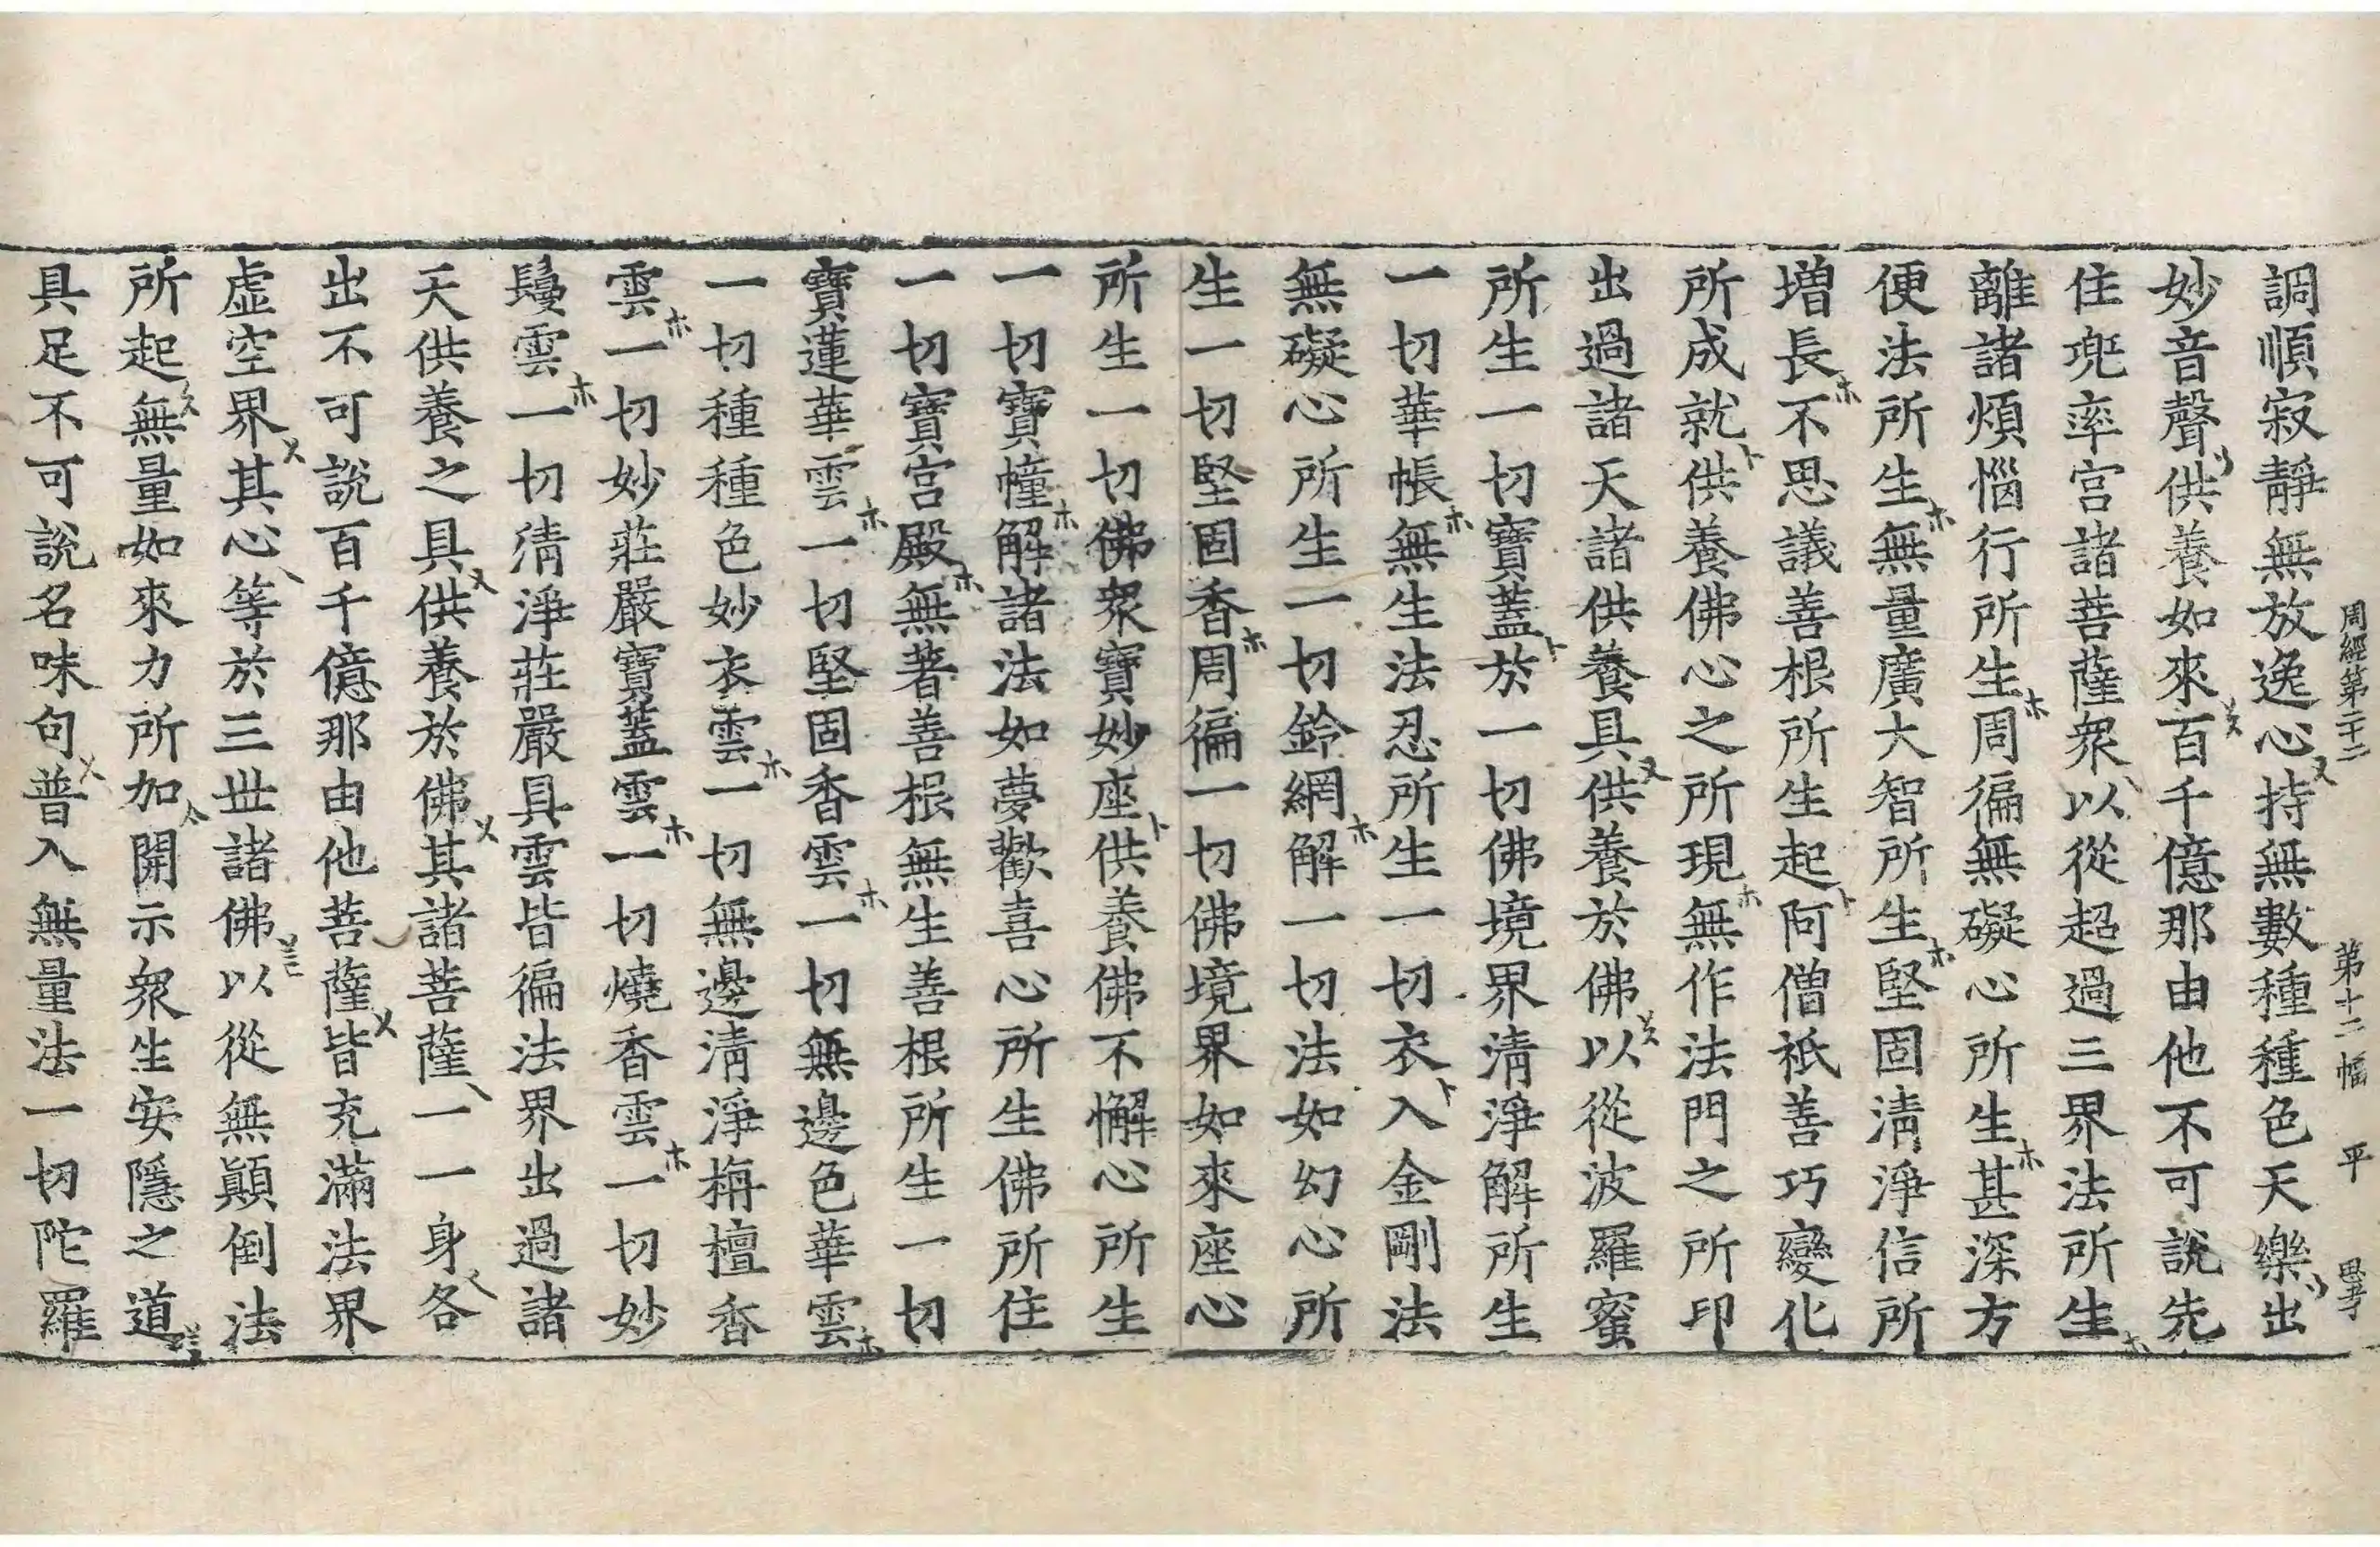 周經第二十二 第十二幅 平
調順寂靜無放逸心持無數種種色天樂出
妙音聲供養如來百千億那由他不可說先
住兜率宮諸菩薩衆以從超過三界法所生
離諸煩惱行所生周徧無礙心所生甚深方
便法所生無量廣大智所生堅固清淨信所
増長不思議善根所生起阿僧祇善巧變化
所成就供養佛心之所現無作法門之所印
出過諸天諸供養具供養於佛以從波羅蜜
所生一切寶蓋於一切佛境界清淨解所生
一切華帳無生法忍所生一切衣入金剛法
無礙心所生一切鈴網解一切法如幻心所
生一切堅固香周徧一切佛境界如來座心
所生一切佛衆寶妙座供養佛不懈心所生
一切寶幢解諸法如夢歡喜心所生佛所住
一切寶宮殿無著善根無生善根所生一切
寶蓮華雲一切堅固香雲一切無邊色華雲
一切種種色妙衣雲一切無邊清淨栴檀香
雲一切妙莊嚴寶蓋雲一切燒香雲一切妙
鬘雲一切清淨莊嚴具雲皆徧法界出過諸
天供養之具供養於佛其諸菩薩一一身各
出不可說百千億那由他菩薩皆充滿法界
虛空界其心等於三世諸佛以從無顛倒法
所起無量如來力所加開示衆生安隱之道
具足不可說名味句普入無量法一切陀羅